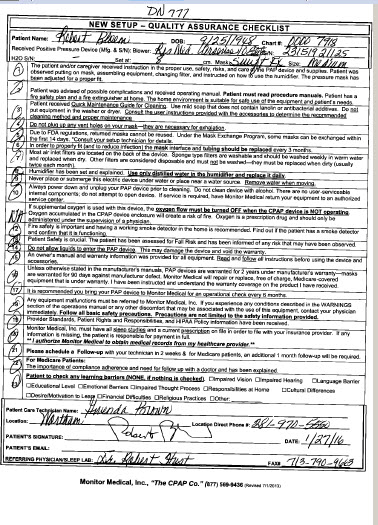 DN 777
NEW SETUP – QUALITY ASSURANCE CHECKLIST
Patient Name: Robert DOB: 9/25/1968 Chart #:
Received Positive Pressure Device (Mfg. & S/N): Blower: S/N:
H2O S/N: Set at: cm. Mask: Size: Medium
The patient and/or caregiver received instruction in the proper use, safety, risks, and care of the PAP device and supplies. Patient was
observed putting on mask, assembling equipment, changing filter, and instructed on how to use the humidifier. The pressure mask has
been adjusted for a proper fit.
Patient was advised of possible complications and received operating manual. Patient must read procedure manuals. Patient has a
fire safety plan and a fire extinguisher at home. The home environment is suitable for safe use of the equipment and patient's needs.
Patient received Quick Maintenance Guide for Cleaning. Use mild soap that does not contain lanolin or antibacterial additives. Do not
put equipment in the washer or dryer. Consult the user instructions provided with the accessories to determine the recommended
cleaning method and proper maintenance.
Do not plug up any vent holes on your mask—they are necessary for exhalation.
Due to FDA regulations, returned masks cannot be reused. Under the Mask Exchange Program, some masks can be exchanged within
the first 14 days. *Consult your setup technician for details.
In order to properly fit (and to reduce infection) the mask interface and tubing should be replaced every 3 months.
Most air inlet filters are located on the back of the device. Sponge type filters are washable and should be washed weekly in warm water
and replaced when dry. Other filters are considered disposable and must not be washed—they must be replaced when dirty (usually
twice each month).
Humidifier has been set and explained. Use only distilled water in the humidifier and replace it daily.
Never place or submerge this electric device under water or place near a water source. Remove water when moving.
Always power down and unplug your PAP device prior to cleaning. Do not clean device with alcohol. There are no user-serviceable
internal components; do not attempt to open device. If service is required, have Monitor Medical return your equipment to an authorized
service center.
If supplemental oxygen is used with this device, the oxygen flow must be turned OFF when the CPAP device is NOT operating.
Oxygen accumulated in the CPAP device enclosure will create a risk of fire. Oxygen is a prescription drug and should only be
administered under the supervision of a physician.
Fire safety is important and having a working smoke detector in the home is recommended. Find out if the patient has a smoke detector
and confirm that it is functioning.
Patient Safety is crucial. The patient has been assessed for Fall Risk and has been informed of any risk that may have been observed.
Do not allow liquids to enter the PAP device. This may damage the device and void the warranty.
An owner's manual and warranty information was provided for all equipment. Read and follow all instructions before using the device and
accessories.
Unless otherwise stated in the manufacturer's manuals, PAP devices are warranted for 2 years under manufacturer's warranty—masks
are warranted for 90 days against manufacturer defect.
It is recommended you bring your PAP device to Monitor Medical for an operational check every 6 months.
Any equipment malfunctions must be referred to Monitor Medical, Inc. If you experience any conditions described in the WARNINGS
section of the operations manual or any other discomfort that may be associated with the use of this equipment, contact your physician
immediately. Follow all basic safety precautions. Precautions are not limited to the safety information provided.
Provider Standards, Patient Rights and Responsibilities, and HIPAA Policy information have been received.
Monitor Medical, Inc. must have all sleep studies and a current prescription on file in order to file with your insurance provider. If any
information is missing, the patient is responsible for payment in full.
"I authorize Monitor Medical to obtain medical records from my healthcare provider."
Please schedule a Follow-up with your technician in 2 weeks & for Medicare patients, an additional 1 month follow-up will be required.
For Medicare Patients:
The importance of compliance adherence and need for follow up with a doctor has been explained.
Patient to check any learning barriers (NONE, if nothing is checked). Impaired Vision Impaired Hearing Language Barrier
Educational Level Emotional Barriers Impaired Thought Process Responsibilities at Home Cultural Differences
Desire/Motivation to Learn Financial Difficulties Religious Practices Other:
Patient Care Technician Name: Brown
Location: Location Direct Phone #: 281-970-
PATIENT'S SIGNATURE: DATE: 1/27/16
PATIENT'S EMAIL:
REFERRING PHYSICIAN/SLEEP LAB: Dr. Robert FAX# 713-790-9663
Monitor Medical, Inc., "The CPAP Co." (877) 599-9436 (Revised 7/1/2013)